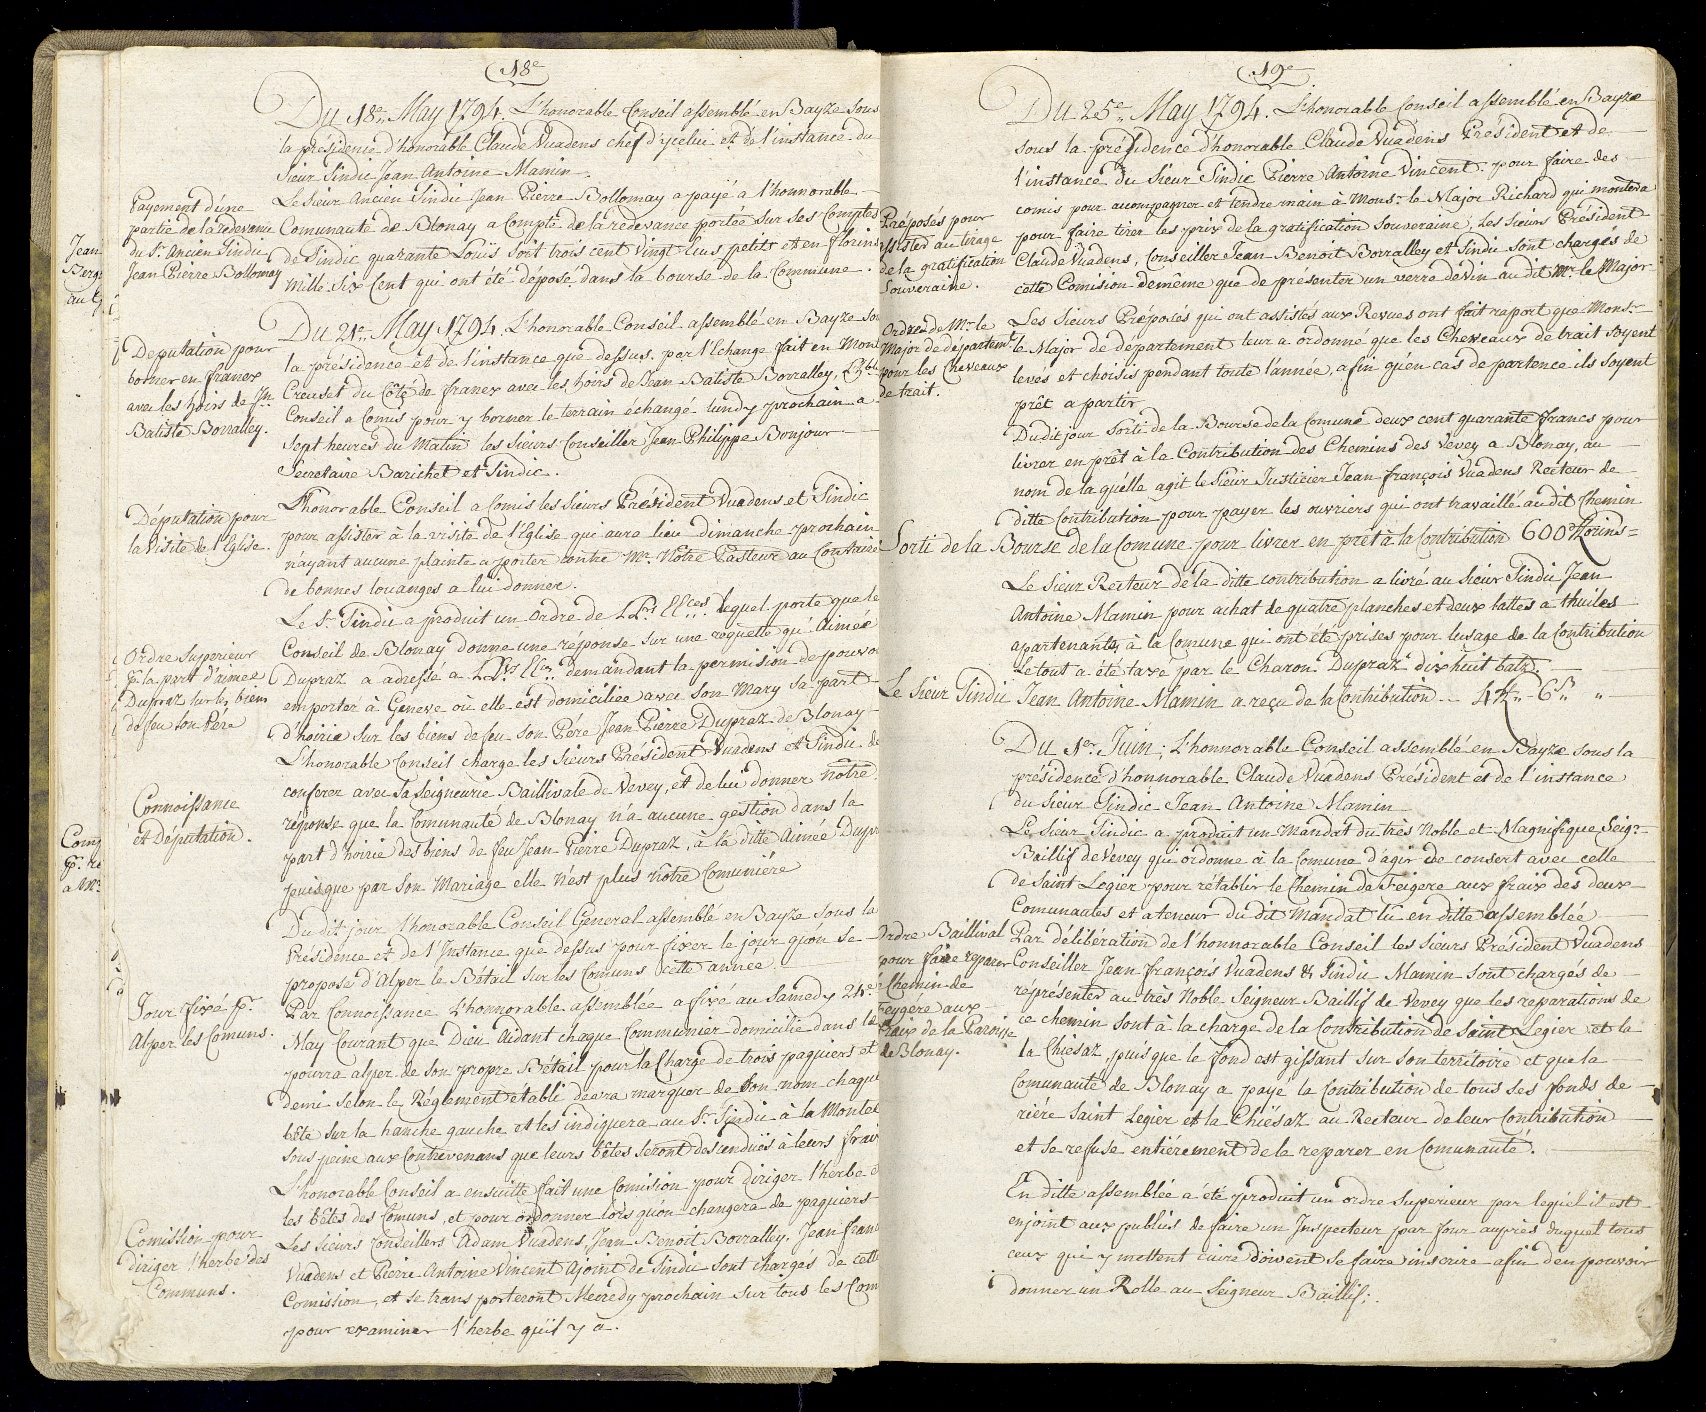 18e
Du 18e. May 1794. L'honorable Conseil assemblé en Bayze sous
la présidence d'honorable Claude Vuadens chef d'ycelui et de l'instance du
Sieur Sindic Jean Antoine Mamin.
Payement d'une
partie de la redevance
du Sr. Ancien Sindic
Jean Pierre Bollomay
Le Sieur Ancien Sindic Jean Pierre Bollomay a payé a l'honnorable
Comunauté de Blonay a Compte de la redevance portée sur ses Comptes
de Sindic quarante Loüis soit trois cent vingt Ecus petits et en florins
Mille Six Cent qui ont été déposé dans la bourse de la Commune.
Jean
Du 21e. May 1794. L'honorable Conseil assemblé en Bayze
Deputation pour
borner en franex
avec les hoirs de Jn.
Batiste Borralley.
la présidence et de l'instance que dessus. par l'Echange fait en
Creuset du Côté de franex avec les hoirs de Jean Batiste Borralley,
Conseil a Comis pour y borner le terrain échangé lundy prochain a
Sept heures du Matin les Sieurs Conseiller Jean Philippe Bonjour
Secretaire Barichet et Sindic.
Députation pour
la Visite de l'Eglise.
L'honorable Conseil a Comis les Sieurs Président Vuadens et Sindic
pour assister à la visite de l'Eglise qui aura lieu dimanche prochain
n'ayant aucune plainte a porter contre Mr. Nôtre Pasteur au Contraire
de bonnes louanges a lui donner.
Ordre Superieur
pr. la part d'aimée
Dupraz sur les biens
de feu son Père
Le Sr. Sindic a produit un Ordre de LLrs. EEces. lequel porte que le
Conseil de Blonay donne une réponse sur une requette qu'Aimée
Dupraz a adressé a LLrs. EEces. demandant la permision de
emporter à Geneve où elle est domiciliée avec son Mary sa part
d'hoirie sur les biens de feu son Pére Jean Pierre Dupraz de Blonay
Connoissance
et Députation.
L'honorable Conseil charge les Sieurs Président Vuadens et Sindic de
conferer avec Sa Seigneurie Baillivale de Vevey, et de lui donner nôtre
réponse que la Comunauté de Blonay n'a aucune gestion dans la
part d'hoirie des biens de feu Jean Pierre Dupraz, à la ditte Aimée
puisque par son Mariage elle n'est plus nôtre Comuniére
Du dit jour l'honorable Conseil General assemblé en Bayze sous la
Présidence et de l'Instance que dessus pour fixer le jour qu'on se
propose d'Alper le Bétail sur les Comuns cette année.
Jour fixé pr.
Alper les Comuns.
Par Connoissance L'honnorable assemblée a fixé au Samedy 24e
May Courant que Dieu Aidant chaque Communier domicilié dans le
pourra alper de son propre Bétail pour la Charge de trois paquiers et
demi selon le Réglement établi devra marquer de son nom chaque
bête sur la hanche gauche et les indiquera au Sr. Sindic à la Montée
sous peine aux Contrevenans que leurs bêtes seront descenduës à leurs frais
Comission pour
diriger l'herbe des
Communs.
L'honorable Conseil a ensuitte fait une Comission pour diriger l'herbe
les bêtes des Comuns, et pour ordonner lors qu'on changera de paquiers
Les Sieurs Conseillers Adam Vuadens, Jean Benoit Borralley, Jean
Vuadens et Pierre Antoine Vincent Ajoint de Sindic sont chargés de cette
Comission, et se transporteront Mecredy prochain sur tous les
pour examiner l'herbe qu'il y a.
19e
Du 25e. May 1794. L'honorable Conseil assemblé en Bayze
sous la présidence d'honorable Claude Vuadens Président et de
l'instance du Sieur Sindic Pierre Antoine Vincent. pour faire des
comis pour accompagner et tendre main à Monsr. le Major Richard qui montera
pour faire tirer les prix de la gratification Souveraine, Les Sieurs Président
Claude Vuadens, Conseiller Jean Benoit Borralley et Sindic sont chargés de
cette Comision demême que de présenter un verre de vin au dit Mr. le Major
Préposés pour
assister au tirage
de la gratification
Souveraine.
Ordre de Mr. le
Major de département
pour les Chevaux
de trait.
Les Sieurs Préposés qui ont assistés aux Revues ont fait raport que Monsr.
le Major de département leur a ordonné que les Cheveaux de trait soyent
levés et choisis pendant toute l'année, afin qu'en cas de partence ils soyent
prêt a partir
Dudit jour Sorti de la Bourse de la Comune deux cent quarante francs pour
livrer en prêt à la Contribution des Chemins des Vevey a Blonay, au
nom de la quelle agit le Sieur Justicier Jean françois Vuadens Recteur de
ditte Contribution pour payer les ouvriers qui ont travaillé au dit Chemin
Sorti de la Bourse de la Comune pour livrer en pret à la Contribution 600 florins=
Le Sieur Recteur de la ditte contribution a livré au Sieur Sindic Jean
Antoine Mamin pour achat de quatre planches et deux lattes a thuiles
apartenants à la Comune qui ont été prises pour lusage de la Contribution
Le tout a été taxé par le Charon Dupraz dixhuit batz.
Le Sieur Sindic Jean Antoine Mamin a reçu de la Contribution
Du 1er. Juin; L'honnorable Conseil assemblé en Bayze sous la
présidence d'honnorable Claude Vuadens Président et de l'instance
du Sieur Sindic Jean Antoine Mamin
Le Sieur Sindic a produit un Mandat du très Noble et Magnifique Seigr.
Baillif de Vevey qui ordonne à la Comune d'agir de consert avec celle
de Saint Legier pour rétablir le Chemin de Feigere aux fraix des deux
Comunautes et a teneur du dit Mandat lû en ditte assemblée
Ordre Baillival
pour faire reparer
Chemin de
Feygére aux
fraix de la Paroisse
de Blonay.
Par délibération de l'honnorable Conseil les Sieurs Président Vuadens
Conseiller Jean françois Vuadens & Sindic Mamin sont chargés de
réprésenter au très Noble Seigneur Baillif de Vevey que les reparations de
ce chemin sont à la charge de la Contribution de Saint Legier et la
la Chiesaz, puisque le fond est gissant sur son territoire et que la
Comunauté de Blonay a payé la Contribution de tous ses fonds de
riére Saint Legier et la Chiésaz au Recteur de leur Contribution
et se refuse entiérement de le reparer en Comunauté.
En ditte assemblée a été produit un ordre Superieur par lequel il est
enjoint aux publics de faire un Inspecteur par four auprès duquel tous
ceux qui y mettent cuire doivent se faire inscrire afin d'en pouvoir
donner un Rolle au Seigneur Baillif;.